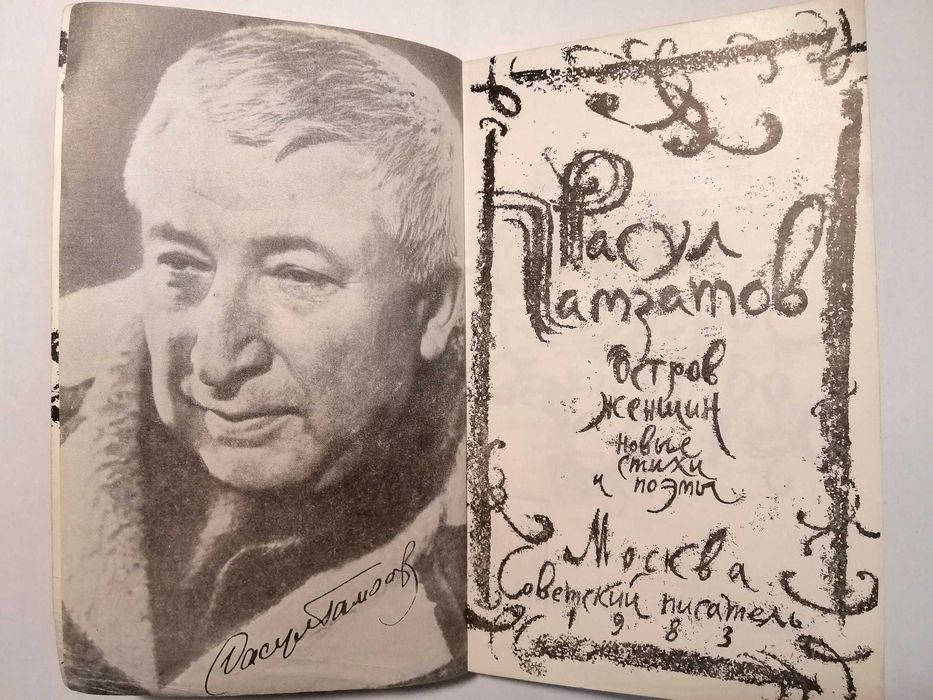 Расул Гамзатов
Расул
Гамзатов
Остров
женщин
новые
стихи
и поэмы
Москва
Советский писатель
1983